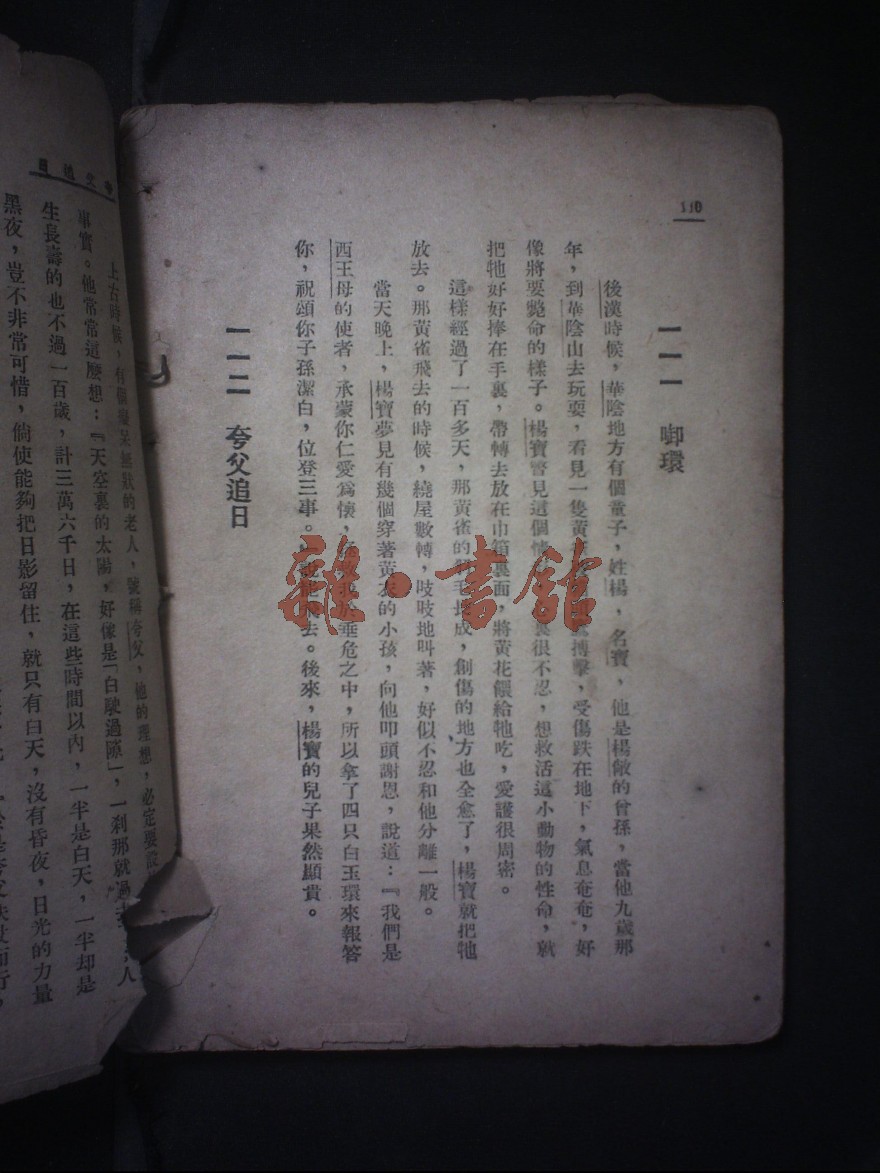 110
一一一 啣環
後漢時候，華陰地方有個童子，姓楊，名寶，他是楊敞的曾孫，當他九歲那
年，到華陰山去玩耍，看見一隻黃 搏擊，受傷跌在地下，氣息奄奄，好
像將要斃命的樣子。楊寶瞥見這個 裏很不忍，想救活這小動物的性命，就
把牠好好捧在手裏，帶轉去放在巾箱裏面，將黃花餵給牠吃，愛護很周密。
這樣經過了一百多天，那黃雀的 毛 成，創傷的地方也全愈了，楊寶就把牠
放去。那黃雀飛去的時候，繞屋數轉，吱吱地叫著，好似不忍和他分離一般。
當天晚上，楊寶夢見有幾個穿著黃衣的小孩，向他叩頭謝恩，說道：『我們是
西王母的使者，承蒙你仁愛爲懷， 於垂危之中，所以拿了四只白玉環來報答
你，祝頌你子孫潔白，位登三事。 去。後來，楊寶的兒子果然顯貴。
一一二 夸父追日
雜·書館
上古時候，有個 的老人，號稱夸父，他的理想，必定要
事實。他常常這麼想：『天空裏的太陽，好像是「白駛過隙」，一刹那就過 人
生長壽的也不過一百歲，計三萬六千日，在這些時間以內，一半是白天，一半却是
黑夜，豈不非常可惜，倘使能夠把日影留住，就只有白天，沒有昏夜，日光的力量